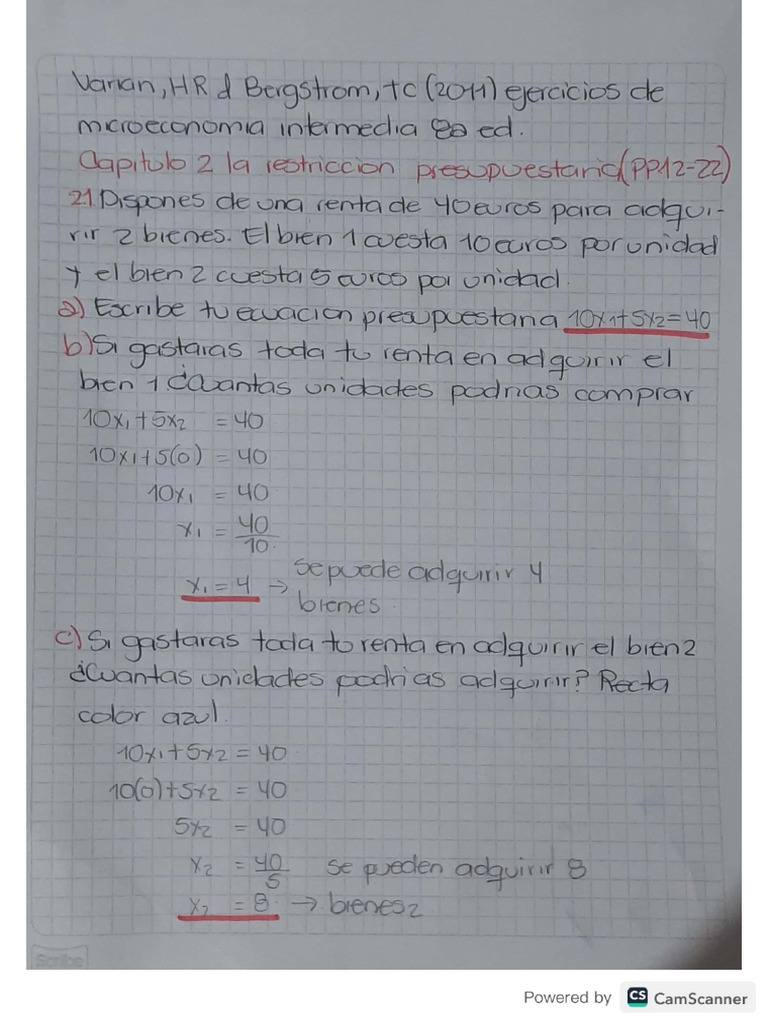 Varian, HR d Bergstrom, TC (2011) ejercicios de
microeconomia intermedia 8a ed.
Capitulo 2 la restriccion presupuestaria (PP12-22)
2.1 Dispones de una renta de 40 euros para adqui-
rir 2 bienes. El bien 1 cuesta 10 euros por unidad
y el bien 2 cuesta 5 euros por unidad.
a) Escribe tu ecuacion presupuestaria 10x1+5x2=40
b) Si gastaras toda tu renta en adquirir el
bien 1 ¿Cuantas unidades podrias comprar
10x1+5x2 = 40
10x1+5(0) = 40
10x1 = 40
x1 = 40/10
x1 = 4 → Se puede adquirir 4
bienes.
c) Si gastaras toda tu renta en adquirir el bien 2
¿Cuantas unidades podrias adquirir? Recta
color azul.
10x1+5x2 = 40
10(0)+5x2 = 40
5x2 = 40
x2 = 40/5 se pueden adquirir 8
x2 = 8 → bienes 2
Scribe
Powered by CS CamScanner